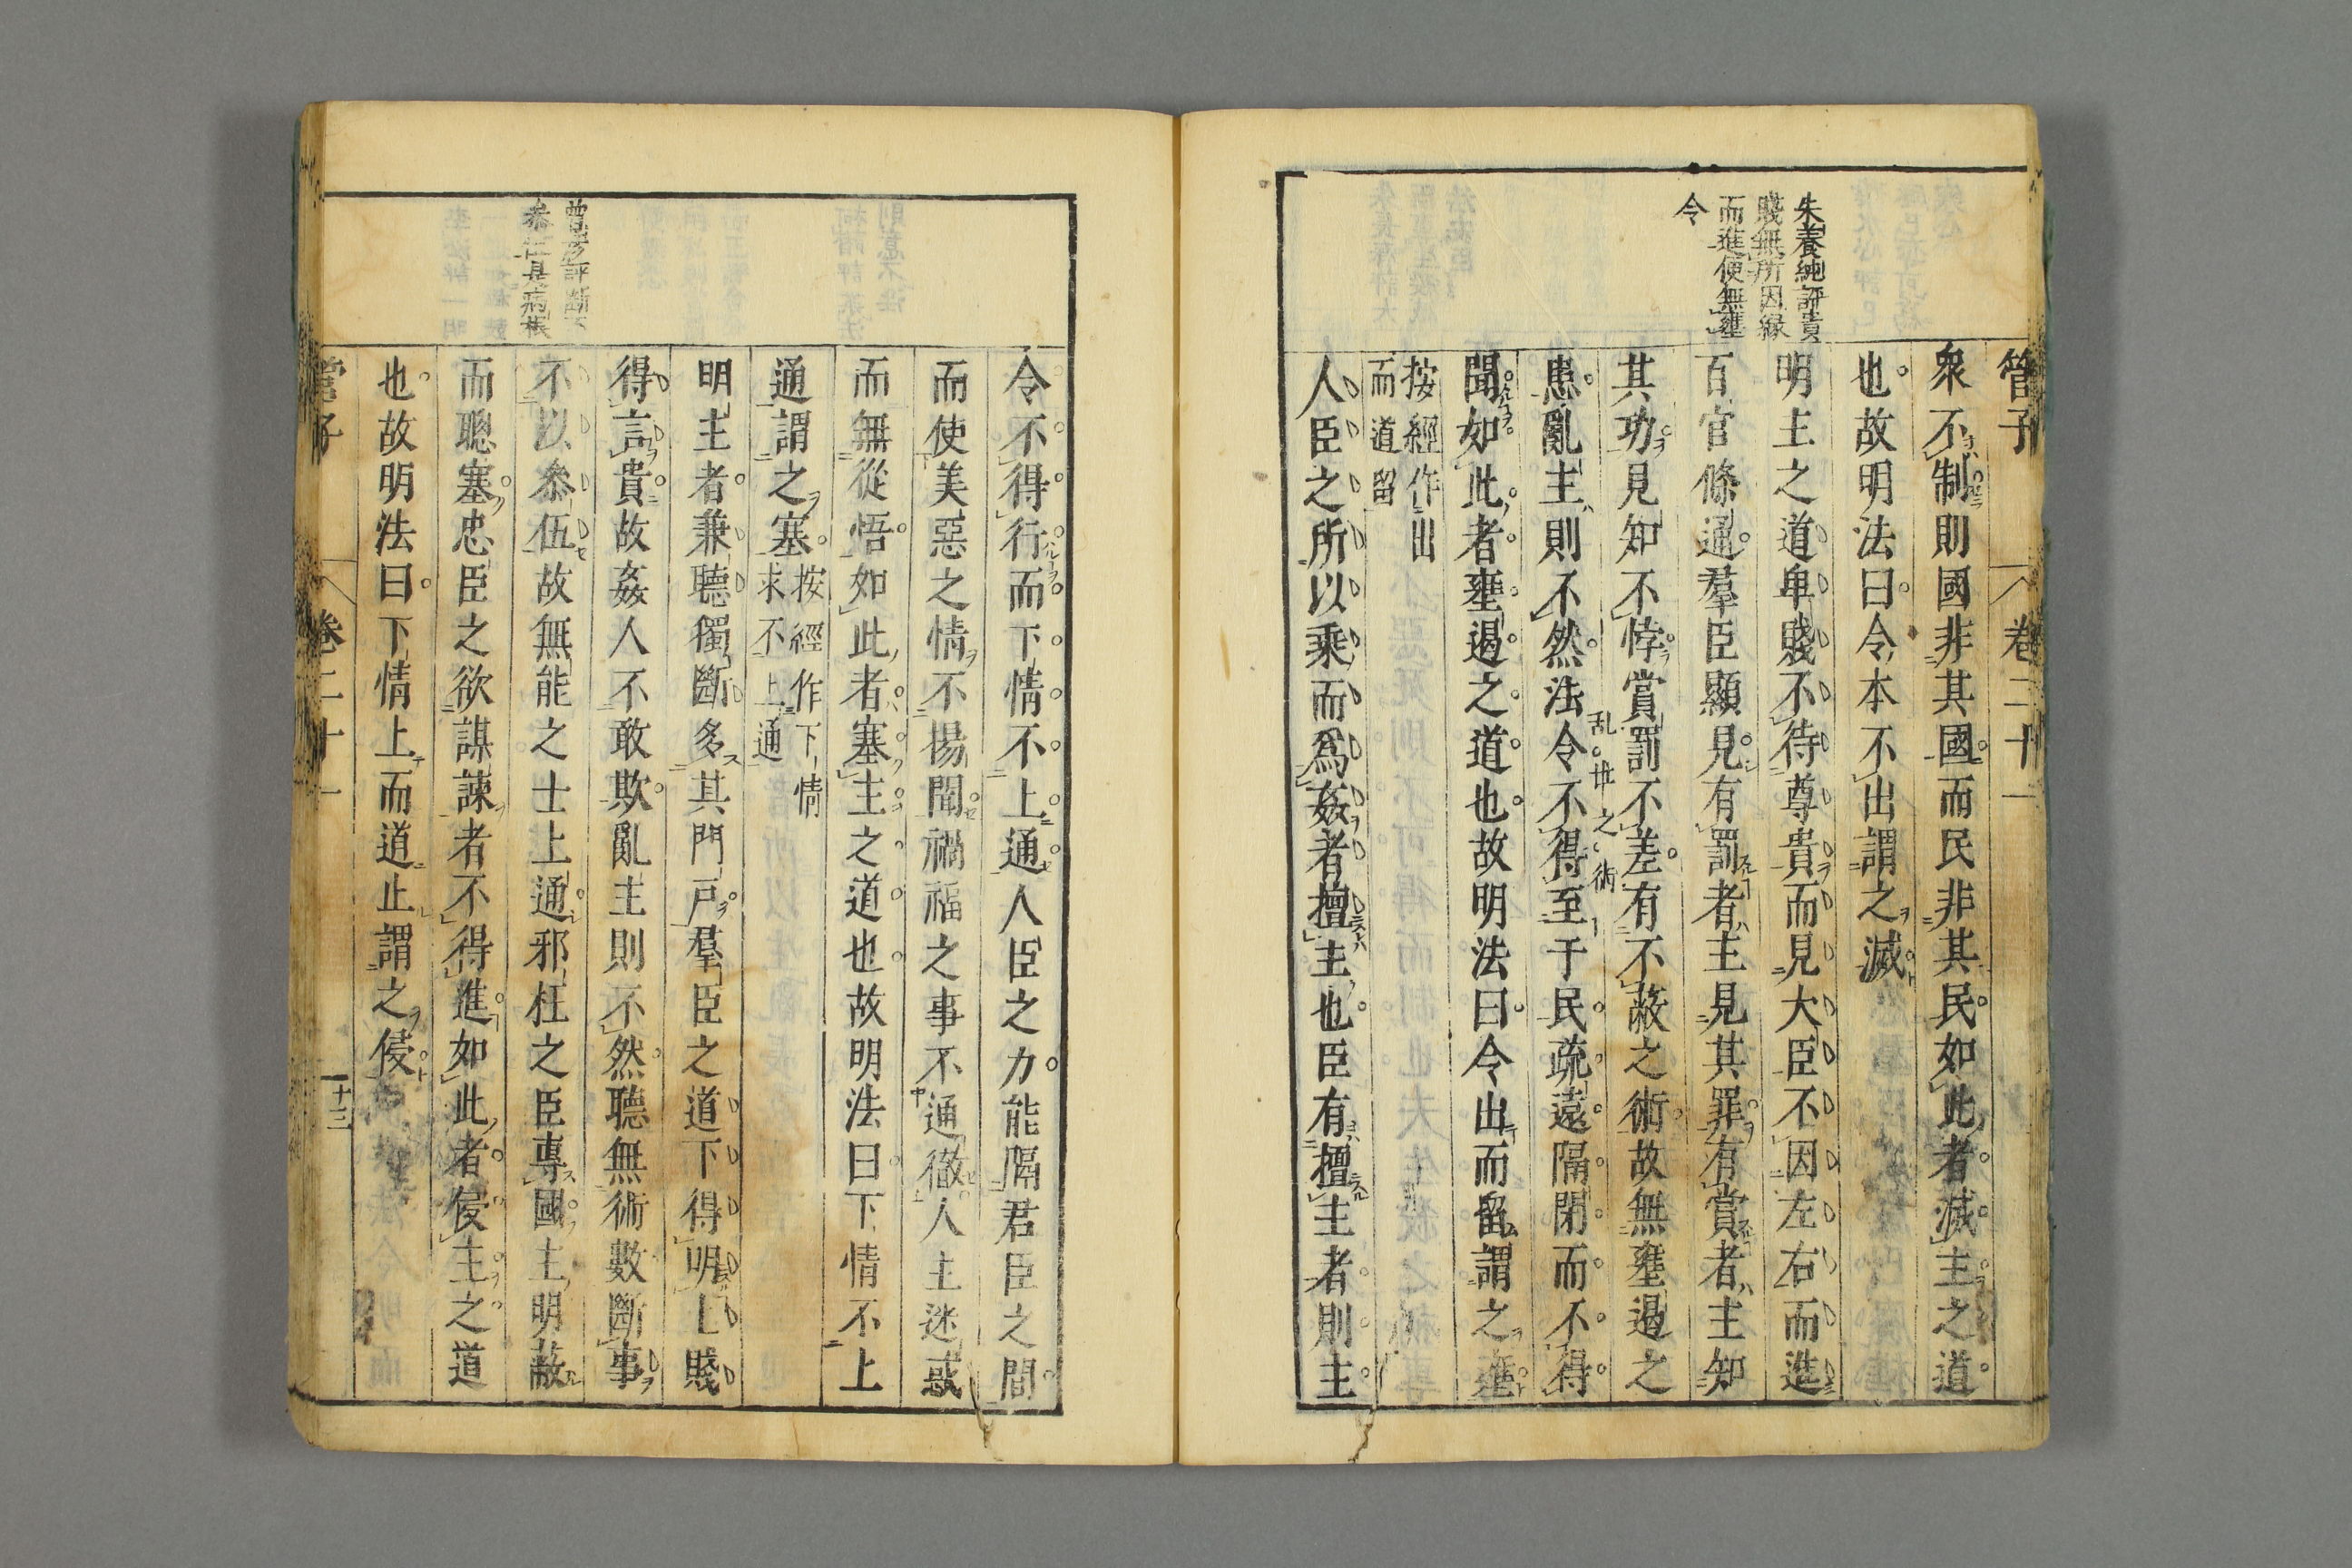 管子
卷二十一
朱養純評貴
賤無所因縁
而進便無壅
令
衆不制則國非其國而民非其民如此者滅主之道
也故明法曰令本不出謂之滅
明主之道卑賤不待尊貴而見大臣不因左右而進
百官條通羣臣顯見有罰者主見其罪有賞者主知
其功見知不悖賞罰不差有不蔽之術故無壅遏之
乱世之術
患亂主則不然法令不得至于民疏遠隔閉而不得
聞如此者壅遏之道也故明法曰令出而留謂之壅
按經作出
而道留
人臣之所以乘而爲姦者擅主也臣有擅主者則主
令不得行而下情不上通人臣之力能隔君臣之間
而使美惡之情不揚聞禍福之事不通徹人主迷惑
而無從悟如此者塞主之道也故明法曰下情不上
通謂之塞
按經作下情
求不上通
明主者兼聽獨斷多其門戸羣臣之道下得明上賤
得言貴故姦人不敢欺亂主則不然聽無術數斷事
曾彦評斷不
叅伍是病根
不以叅伍故無能之士上通邪枉之臣專國主明蔽
而聰塞忠臣之欲謀諫者不得進如此者侵主之道
也故明法曰下情上而道止謂之侵
管子
卷二十一
十三